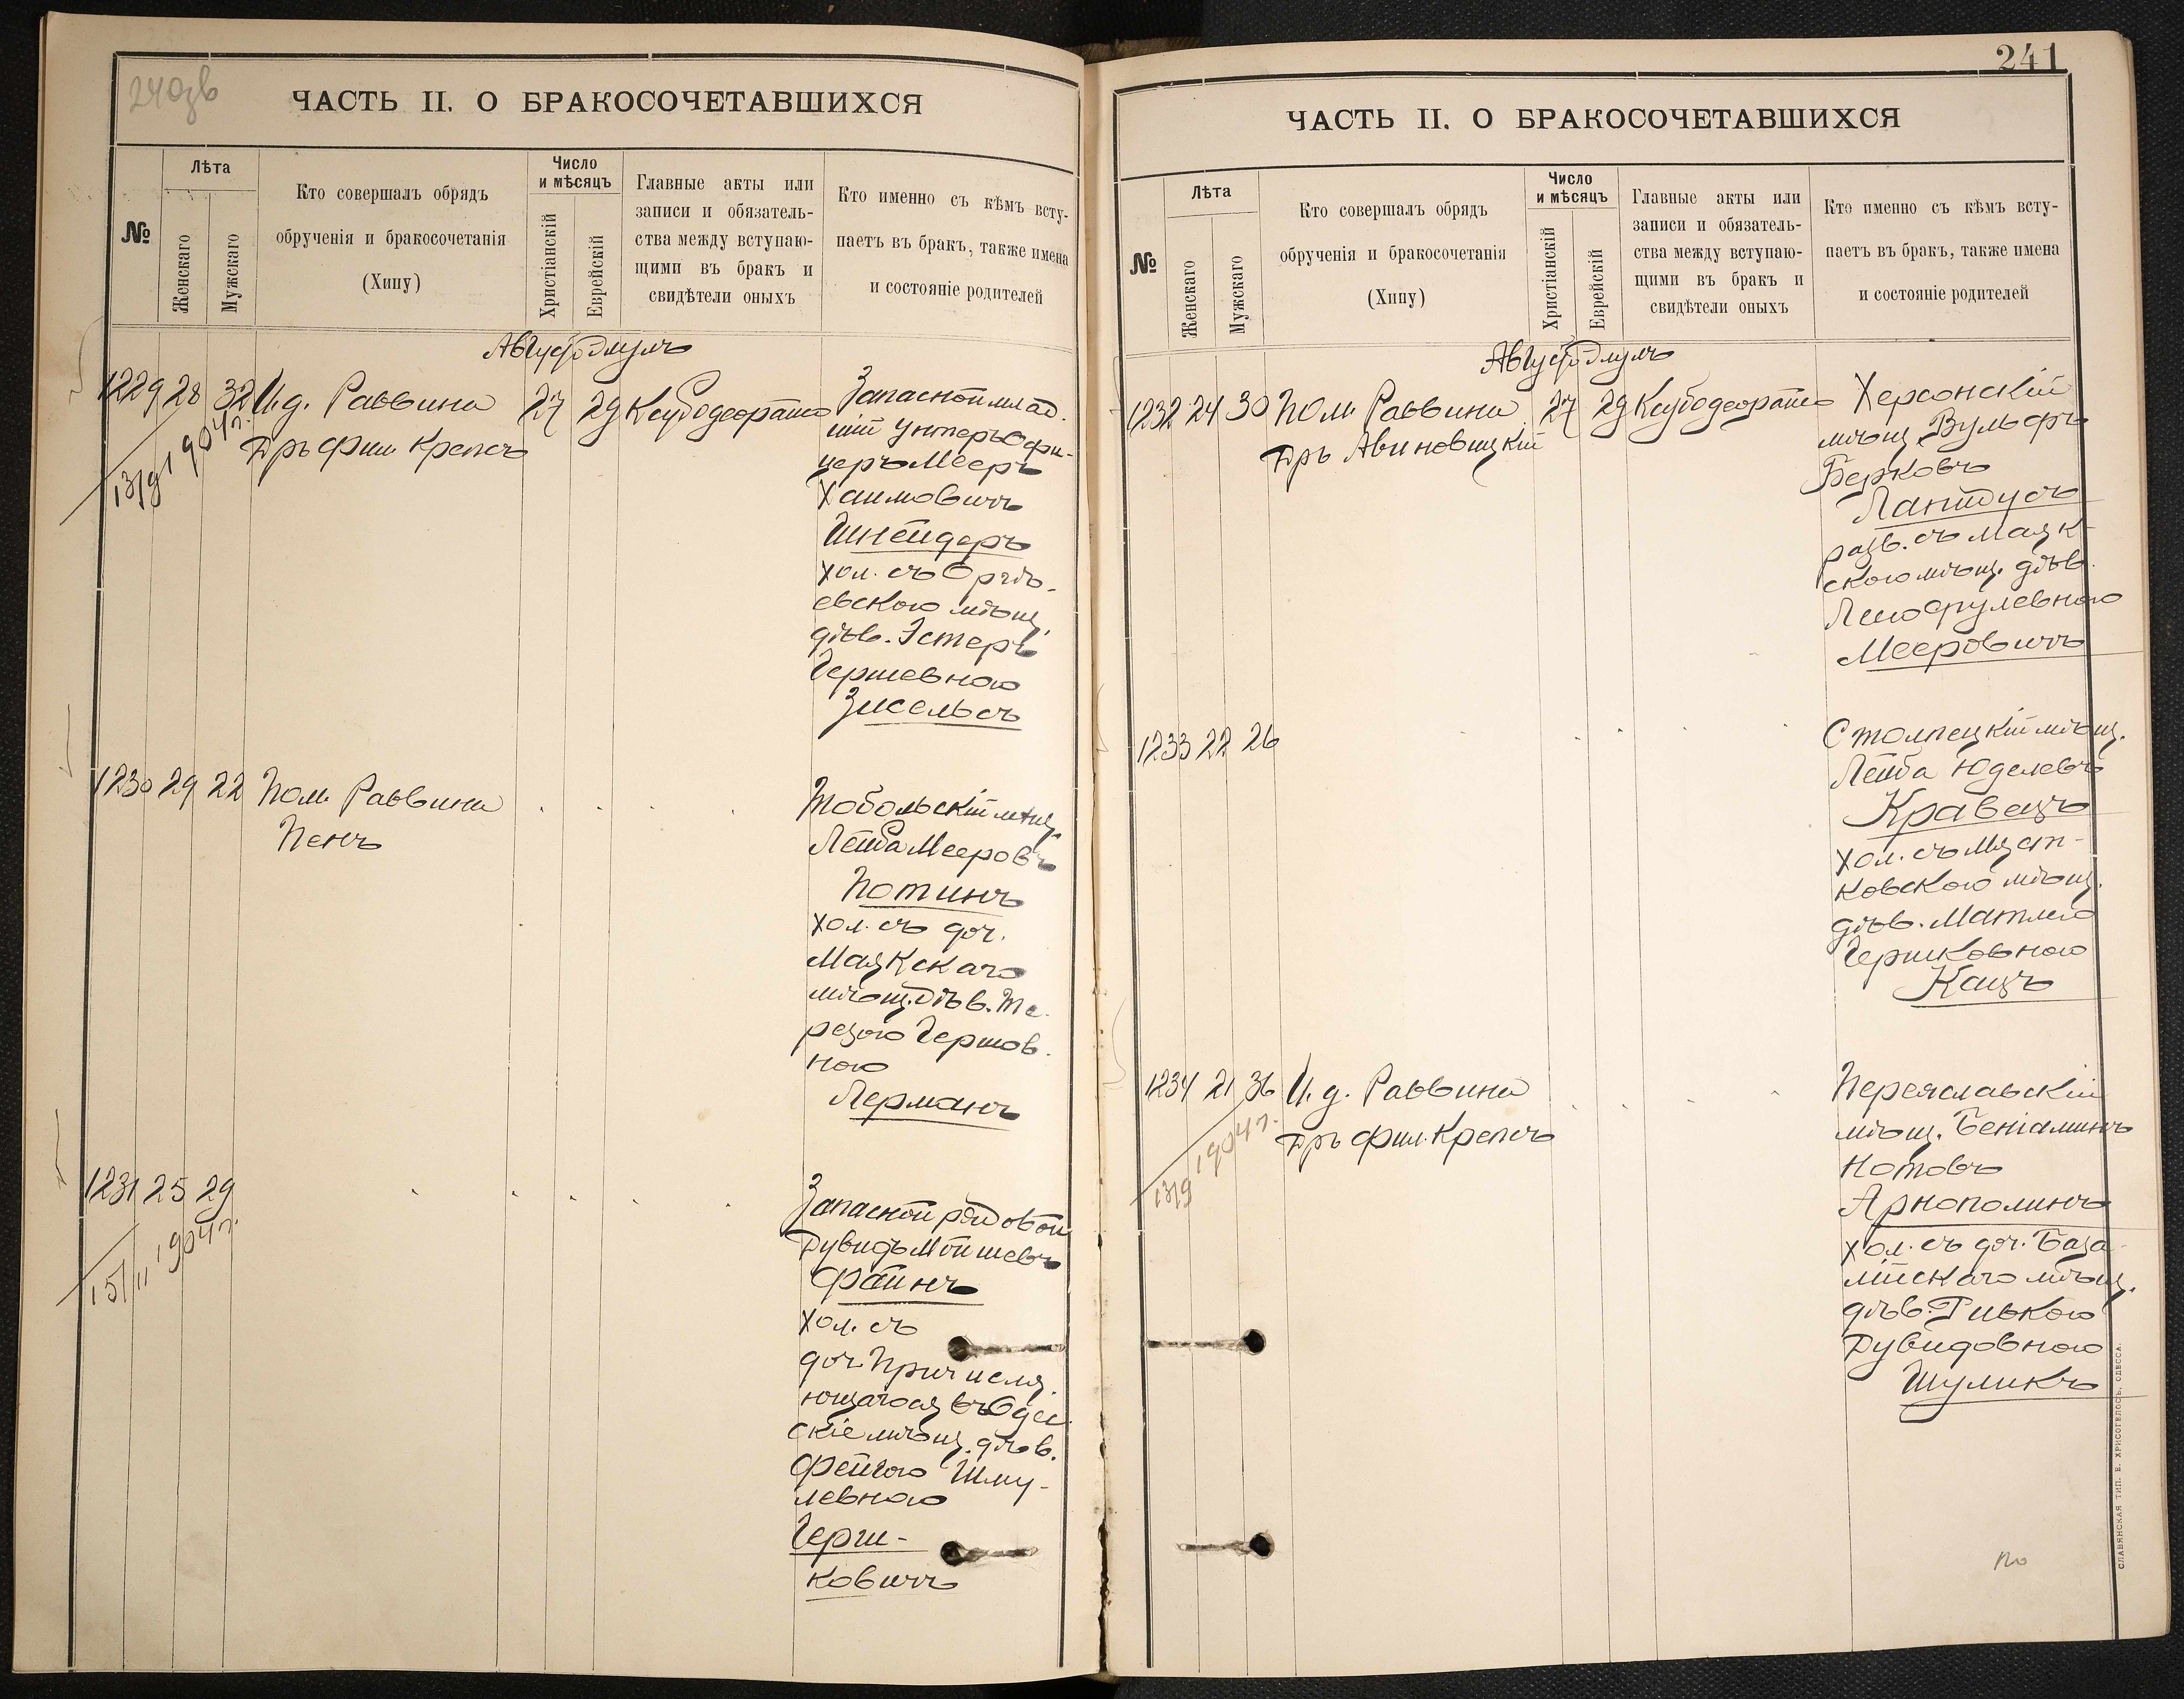 240зв
ЧАСТЬ II. О БРАКОСОЧЕТАВШИХСЯ
№
Лѣта
Женскаго
Мужскаго
Кто совершалъ обрядъ
обрученія и бракосочетанія
(Хипу)
Число
и мѣсяцъ
Христіанскій
Еврейскій
Главные акты или
записи и обязатель-
ства между вступаю-
щими въ бракъ и
свидѣтели оныхъ
Кто именно съ кѣмъ всту-
паетъ въ бракъ, также имена
и состояніе родителей
Августъ Элулъ
1229 28 32 И.д. Раввина 27 29
Дръ Фил. Крепсъ
13/9 1904 г.
Запасной млад.
шій унтеръ Офи-
церъ Мееръ
Хаимовичъ
Шнейдеръ
хол. съ Оргѣ-
евскою мѣщ.
дѣв. Эстеръ
Гершевною
Зисельсъ
1230 29 22 Пом. Раввина
Пенъ
Тобольскій мѣщ.
Лейба Мееровъ
Потинъ
хол. съ доч.
Маякскаго
мѣщ. дѣв. Те-
резою Гершов-
ною
Лерманъ
1231 25 29
15/11 1904 г.
Запасной рядовой
Дувидъ Мойшевъ
Файнъ
хол. съ
доч. Причисля-
ющагося въ Одес
скіе мѣщ. дѣв.
Фейгою Шму-
левною
Герш-
ковичъ
241
ЧАСТЬ II. О БРАКОСОЧЕТАВШИХСЯ
№
Лѣта
Женскаго
Мужскаго
Кто совершалъ обрядъ
обрученія и бракосочетанія
(Хипу)
Число
и мѣсяцъ
Христіанскій
Еврейскій
Главные акты или
записи и обязатель-
ства между вступаю-
щими въ бракъ и
свидѣтели оныхъ
Кто именно съ кѣмъ всту-
паетъ въ бракъ, также имена
и состояніе родителей
Августъ Элулъ
1232 24 30 Пом. Раввина 27 29
Дръ Авиновицкій
Херсонскій
мѣщ. Вульфъ
Берковъ
Лантусъ
разв. съ Маяк-
скою мѣщ. дѣв.
Мееровичъ
1233 22 26
Столпецкій мѣщ.
Лейба Юделевъ
Кравецъ
хол. съ Мяст-
ковскою мѣщ.
дѣв. Матлею
Гершковною
Кацъ
1234 21 36 И.д. Раввина
Дръ Фил. Крепсъ
13/9 1904 г.
Переяславскій
мѣщ. Беніаминъ
Нотовъ
Арнополинъ
хол. съ доч. База-
лійскаго мѣщ.
дѣв. Ривкою
Дувидовною
Шуликъ
СЛАВЯНСКАЯ ТИП. Е. ХРИСОГЕЛОСЪ, ОДЕССА.